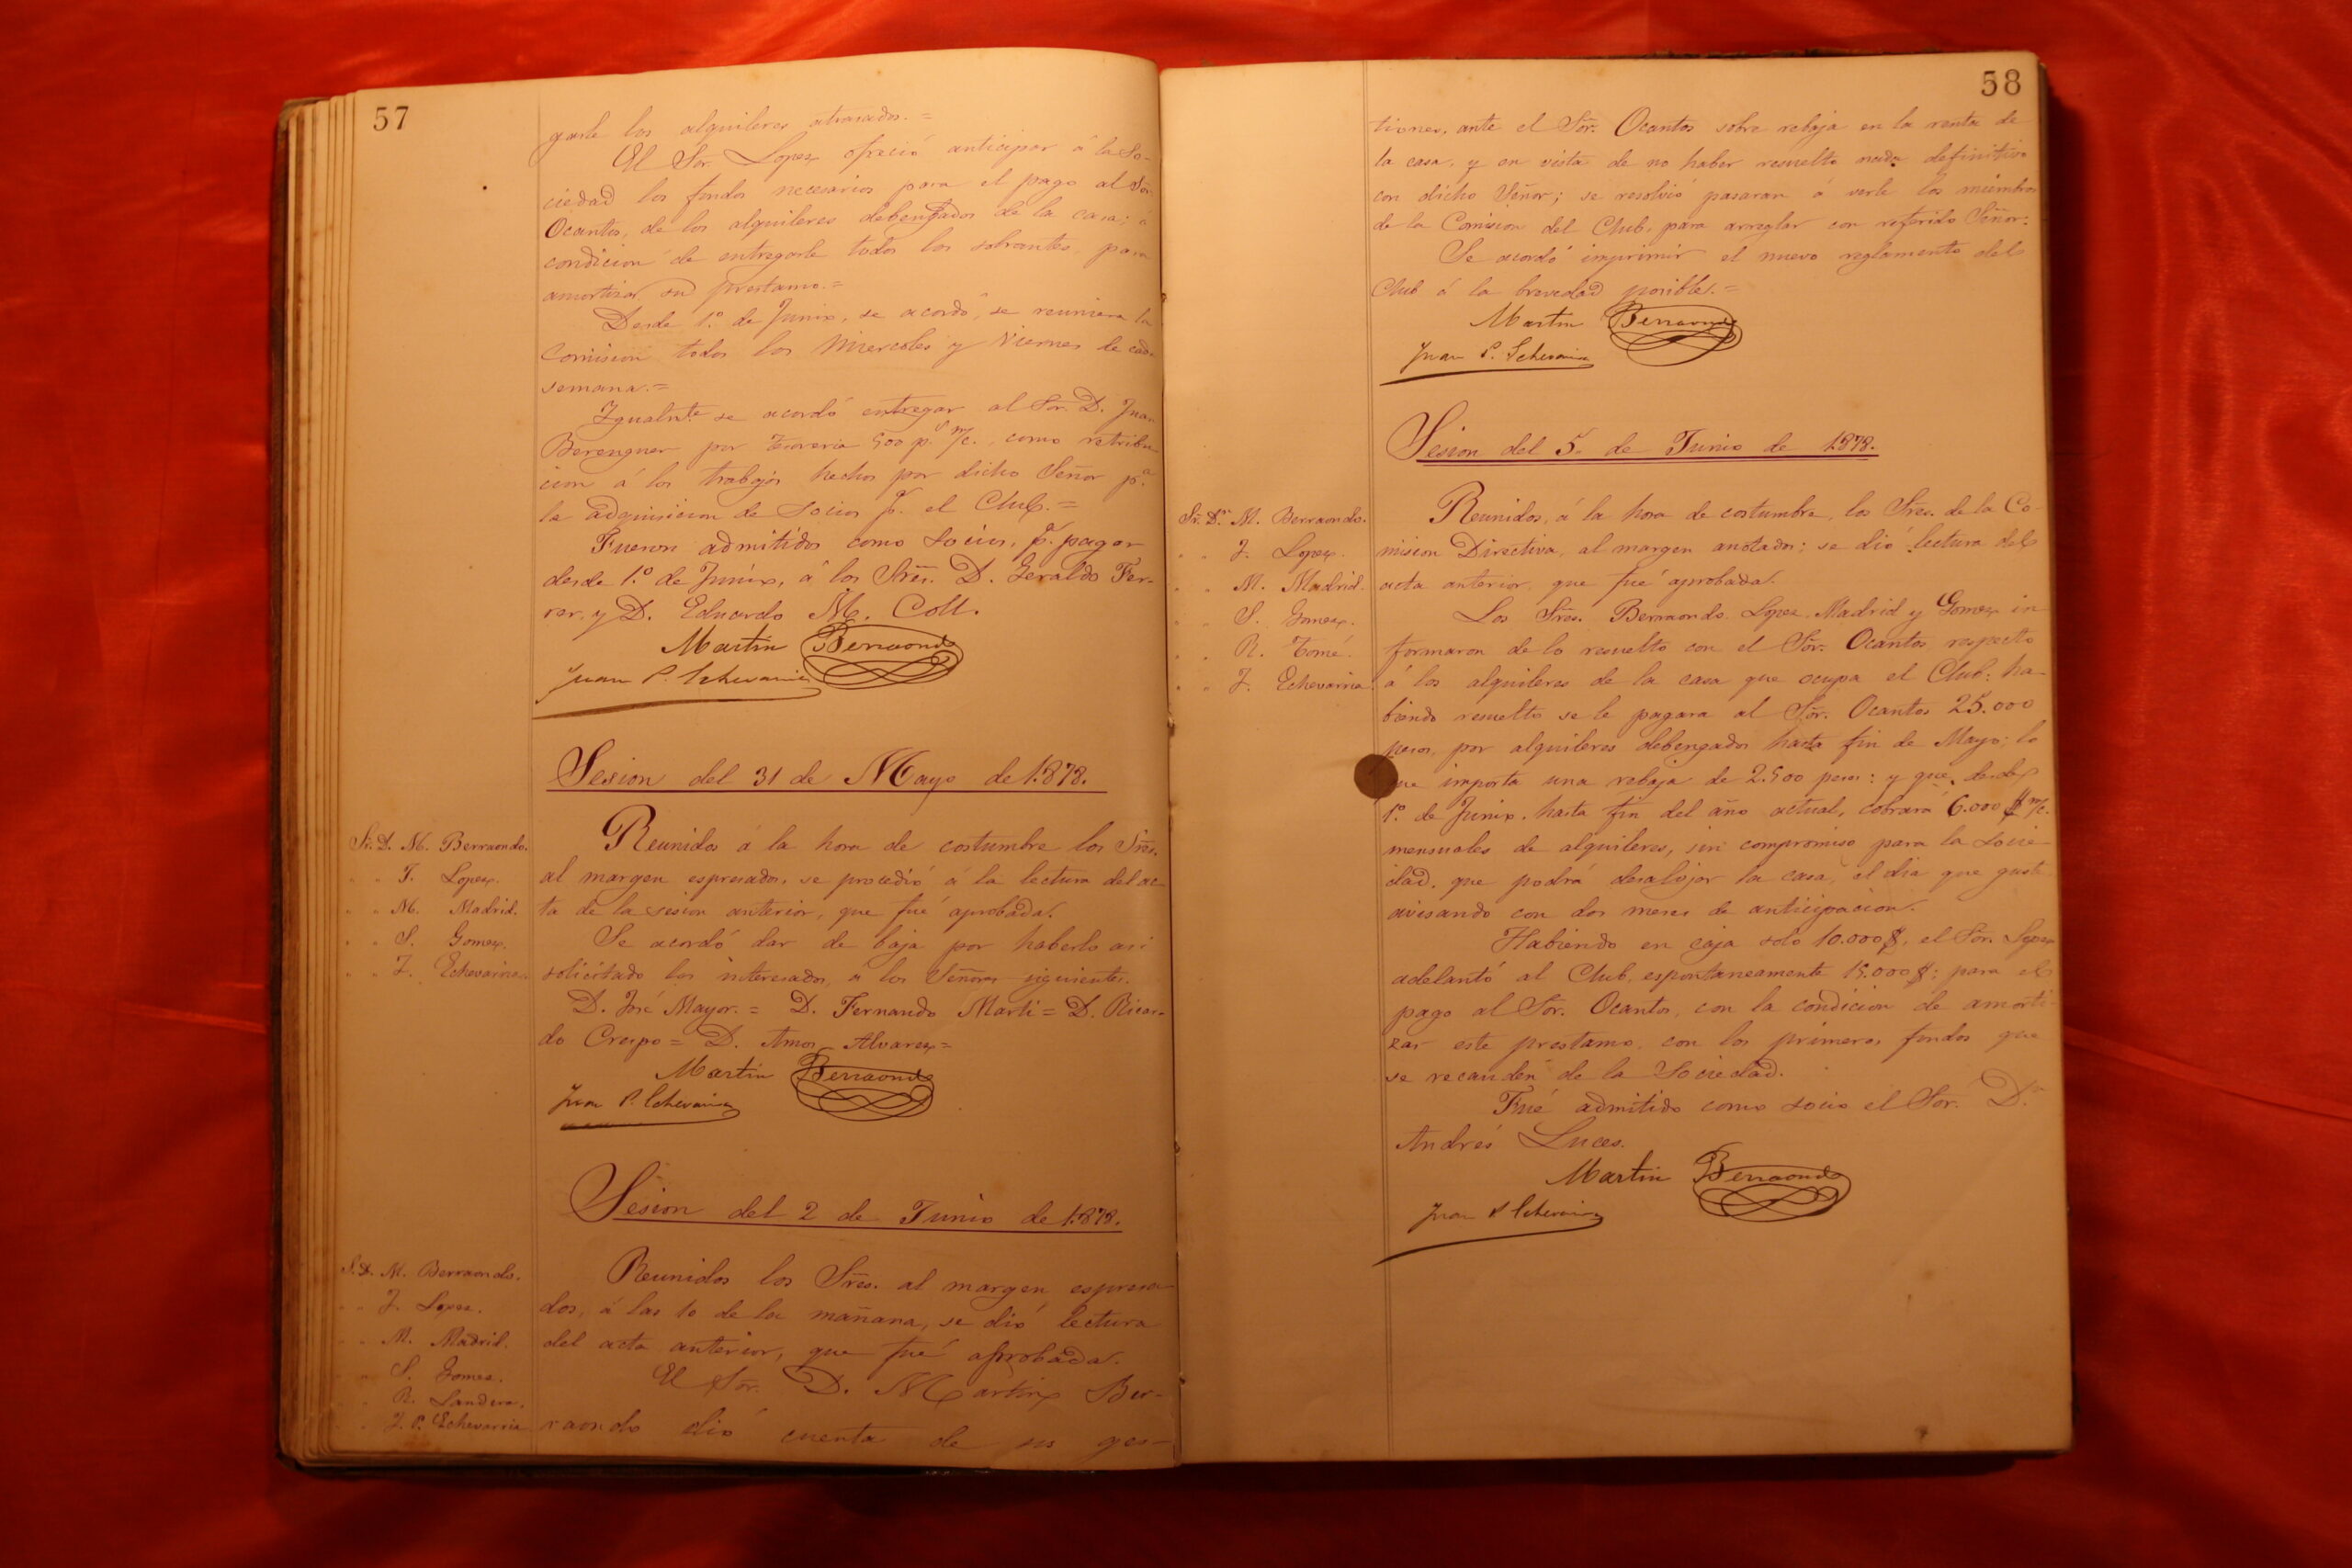 57
garle los alquileres atrasados.=
El Sor. Lopez ofreció anticipar á la So-
ciedad los fondos necesarios para el pago al Sor.
Ocantos, de los alquileres debengados de la casa; á
condicion de entregarle todos los sobrantes, para
amortizar su prestamo.=
Desde 1.º de Junio, se acordó, se reuniera la
Comision todos los Miercoles y Viernes de cada
semana.=
Igualmte. se acordó entregar al Sor. D. Juan
Berenguer por Tesoreria 500 p.s m/c., como retribu-
cion á los trabajos hechos por dicho Señor pª.
la adquisicion de socios p. el Club.=
Fueron admitidos como socios, p. pagar
desde 1.º de Junio, á los Sres. D. Geraldo Fer-
rer, y D. Eduardo M. Coll.
Martin Berraondo
Juan P. Echevarria
Sesion del 31 de Mayo de 1.878.
Sr. D. M. Berraondo.
" " J. Lopez.
" " M. Madrid.
" " S. Gomez.
" " J. Echevarria.
Reunidos á la hora de costumbre los Sres.
al margen espresados, se procedió á la lectura del ac-
ta de la sesion anterior, que fué aprobada.
Se acordó dar de baja por haberlo asi
solicitado los interesados, á los Señores siguientes.
D. José Mayor.= D. Fernando Marti= D. Ricar-
do Crespo= D. Amos Alvarez=
Martin Berraondo
Juan P. Echevarria
Sesion del 2 de Junio de 1.878.
S. D. M. Berraondo.
" " J. Lopez.
" " M. Madrid.
" " S. Gomez.
" " R. Landera.
" " J. P. Echevarria
Reunidos los Sres. al margen espresa-
dos, á las 10 de la mañana, se dió lectura
del acta anterior, que fué aprobada.
El Sor. D. Martin Ber-
raondo dió cuenta de sus ges-
58
tiones, ante el Sor. Ocantos sobre rebaja en la renta de
la casa, y en vista de no haber resuelto nada definitivo
con dicho Señor; se resolvió pasaran á verle los miembros
de la Comision del Club, para arreglar con referido Señor:
Se acordó imprimir el nuevo reglamento del
Club á la brevedad posible.=
Martin Berraondo
Juan P. Echevarria
Sesion del 5 de Junio de 1.878.
Sr. Dn. M. Berraondo.
" " J. Lopez.
" " M. Madrid.
" " S. Gomez.
" " R. Tomé.
" " J. Echevarria.
Reunidos, á la hora de costumbre, los Sres. de la Co-
mision Directiva, al margen anotados; se dió lectura del
acta anterior, que fué aprobada.
Los Sres. Berraondo, Lopez, Madrid y Gomez in-
formaron de lo resuelto con el Sor. Ocantos respecto
á los alquileres de la casa que ocupa el Club: ha-
biendo resuelto se le pagara al Sor. Ocantos 25.000
pesos, por alquileres debengados hasta fin de Mayo; lo
que importa una rebaja de 2.500 pesos: y que, desde
1º. de Junio, hasta fin del año actual, cobrará 6.000 $ m/c.
mensuales de alquileres, sin compromiso para la socie-
dad, que podrá desalojar la casa, el dia que guste
avisando con dos meses de anticipacion.
Habiendo en caja solo 10.000 $, el Sor. Lopez
adelantó al Club, espontaneamente 15.000 $: para el
pago al Sor. Ocantos, con la condicion de amorti-
zar este prestamo, con los primeros fondos que
se recauden de la Sociedad.
Fué admitido como socio el Sor. Dn.
Andrés Luces.
Martin Berraondo
Juan P. Echevarria